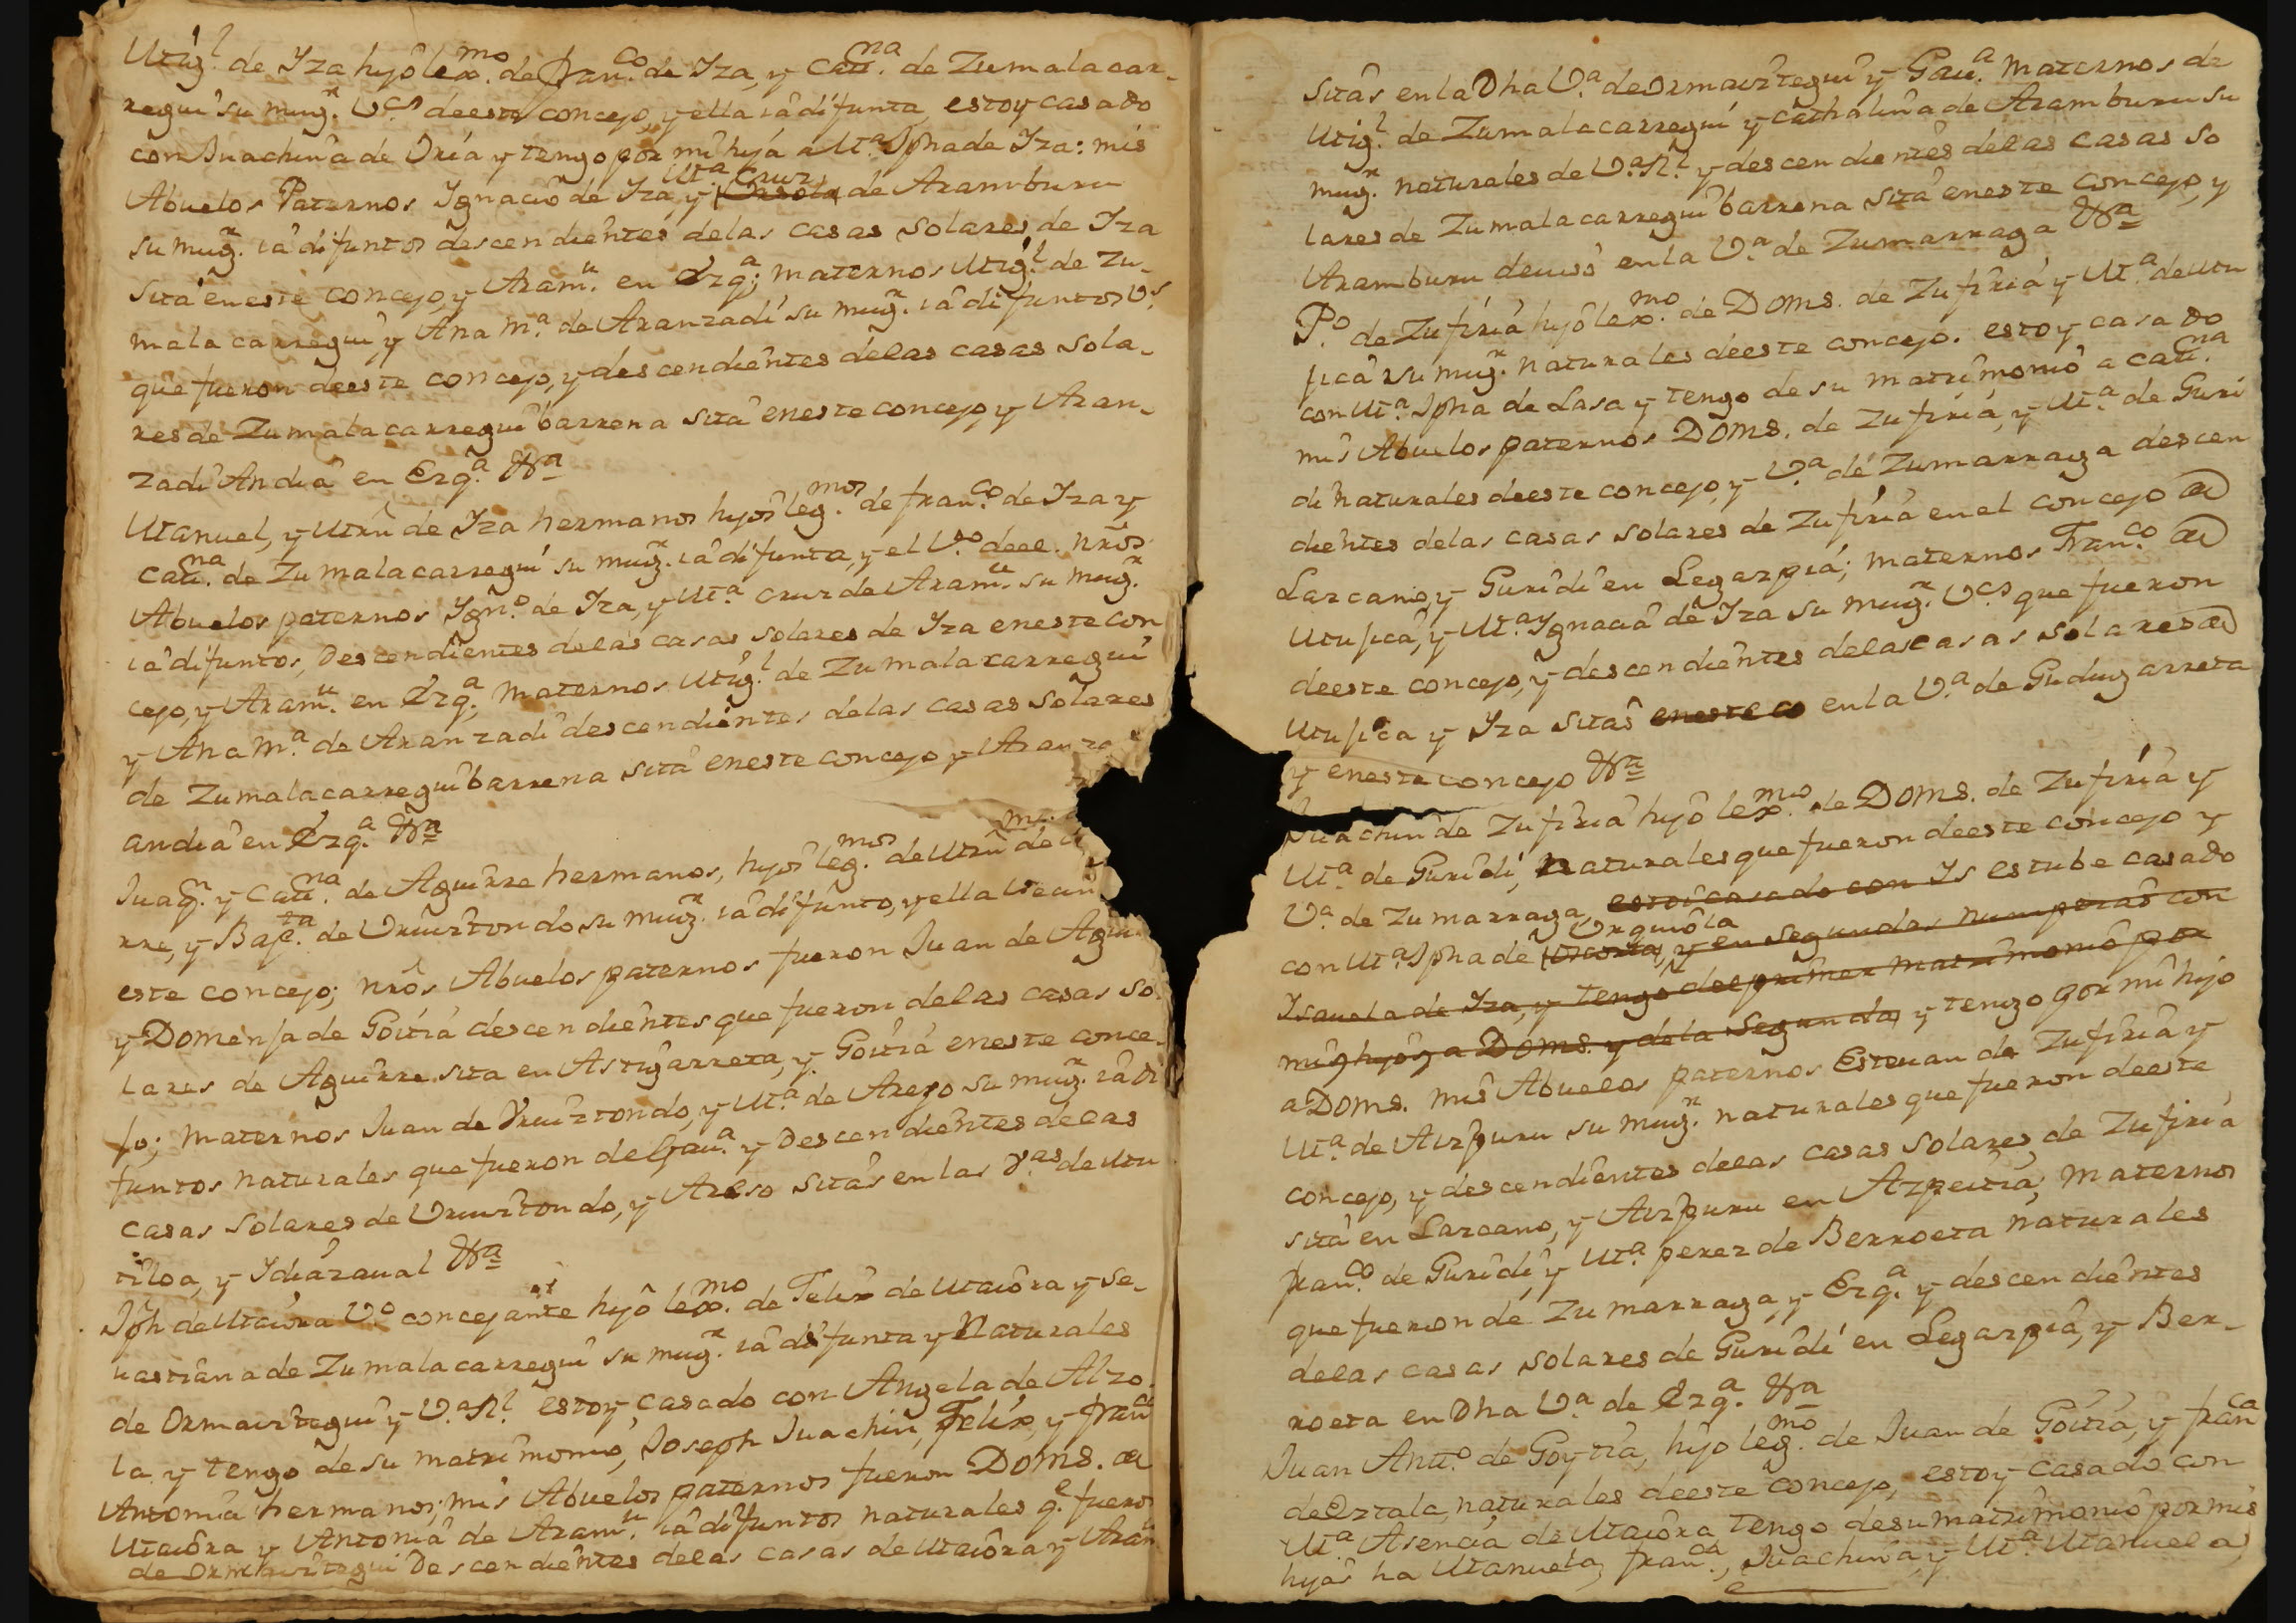 Mig.l de Yza hijo lex.mo de Fran.co de Yza, y Catt.na de Zumalacar-
regui su mug.r V.cs de este concejo, y ella iâ difunta, estoy casado
con Juachina de Oria y tengo por mi hija a M.a Jpha de Yza: mis
Abuelos Paternos Ygnacio de Yza y M.a Cruz de Aramburu
su mug.r iâ difuntos descendientes delas casas solares de Yza
sita en este concejo, y Aram.u en Ezq.a; maternos Mig.l de Zu-
mala carregui y Ana M.a de Aranzadi su mug.r iâ difuntos V.s
que fueron de este concejo, y descendientes delas casas sola-
res de Zumalacarregui barrena sita en este concejo, y Aran-
zadi Andia en Ezq.a &a
Manuel, y Mrñ de Yza hermanos hijos leg.mos de fran.co de Yza y
Catt.na de Zumalacarregui su mug.r iâ difunta, y el V.o de el. nrôs
Abuelos paternos Ygn.o de Yza, y M.a Cruz de Aram.u su mug.r
iâ difuntos, descendientes delas casas solares de Yza en este con
cejo, y Aram.u en Ezq.a; maternos Mig.l de Zumalacarregui
y Ana M.a de Aranzadi descendientes delas casas solares
de Zumalacarregui barrena sita en este concejo y Aranza
andia en Ezq.a &a
Juaq.n y Catt.na de Aguirre hermanos, hijos leg.mos de Mrñ de
rre, y Bap.ta de Vrruiztondo su mug.r iâ difunto, y ella
este concejo; nrôs Abuelos paternos fueron Juan de Agui
y Domenja de Goitia descendientes que fueron delas casas so
lares de Aguirre sita en Astigarreta, y Goitia en este conce
jo; maternos Juan de Vrruiztondo, y M.a de Arezo su mug.r iâ di
funtos naturales que fueron de Gau.a y descendientes delas
casas solares de Vrruiztondo, y Areso sitas en las V.as de Mu
tiloa, y Ydiazaual &a
Jph de Maiôra V.o concejante hijo lex.mo de Felix de Maiôra y Se-
uastiana de Zumalacarregui su mug.r iâ difunta y Naturales
de Ormaiztegui y V.a Rl. estoy casado con Angela de Alzo
la y tengo de su matrimonio, Joseph Juachin, Felix, y fran.ca
Antonia hermanos; mis Abuelos paternos fueron Doms. de
Maiôra y Antonia de Aram.u iâ difuntos naturales q.e fueron
de Ormaiztegui descendientes delas casas de Maiôra y Aram
sitas en la Dha V.a de Ormaiztegui y Gau.a Maternos de
Mig.l de Zumalacarregui y Cathalina de Aramburu su
mug.r naturales de V.a Rl. y descendientes delas casas so
lares de Zumalacarregui barrena sita en este concejo, y
Aramburu en la V.a de Zumarraga &a
P.o de Zufiria hijo lex.mo de Doms. de Zufiria y M.a de Mu
jica su mug.r naturales de este concejo. estoy casado
con M.a Jpha de Lasa y tengo de su matrimonio a Catt.na
mis Abuelos paternos Doms. de Zufiria, y M.a de Guri
di naturales de este concejo, y V.a de Zumarraga descen
dientes delas casas solares de Zufiria en el concejo de
Lazcano, y Guridi en Legazpia; maternos Fran.co de
Mujica, y M.a Ygnacia de Yza su mug.r V.cs que fueron
de este concejo, y descendientes delas casas solares de
Mujica y Yza sitas en este co en la V.a de Gudugarreta
y en este concejo &a
Juachin de Zufiria hijo lex.mo de Doms. de Zufiria y
M.a de Guridi, naturales que fueron de este concejo y
V.a de Zumarraga, estoi casado con Is estube casado
con M.a Jpha de Vrquiola, y en segundas numpcias con
Isauela de Yza, y tengo del primer matrimonio por
mis hijos a Doms. y dela Segunda y tengo por mi hijo
a Doms. mis Abuelos paternos Esteuan de Zufiria y
M.a de Aizpuru su mug.r naturales que fueron de este
concejo, y descendientes delas casas solares, de Zufiria
sita en Lazcano, y Aizpuru en Azpeitia; maternos
fran.co de Guridi, y M.a perez de Berroeta naturales
que fueron de Zumarraga, y Ezq.a y descendientes
delas casas solares de Guridi en Legazpia, y Ber-
roeta en Dha V.a de Ezq.a &a
Juan Antt.o de Goytia, hijo leg.mo de Juan de Goitia, y fran.ca
de Oztala, naturales de este concejo, estoy casado con
M.a Asencia de Maiôra tengo de su matrimonio por mis
hijas ha Manuela, fran.ca, Juachina, y M.a Manuela